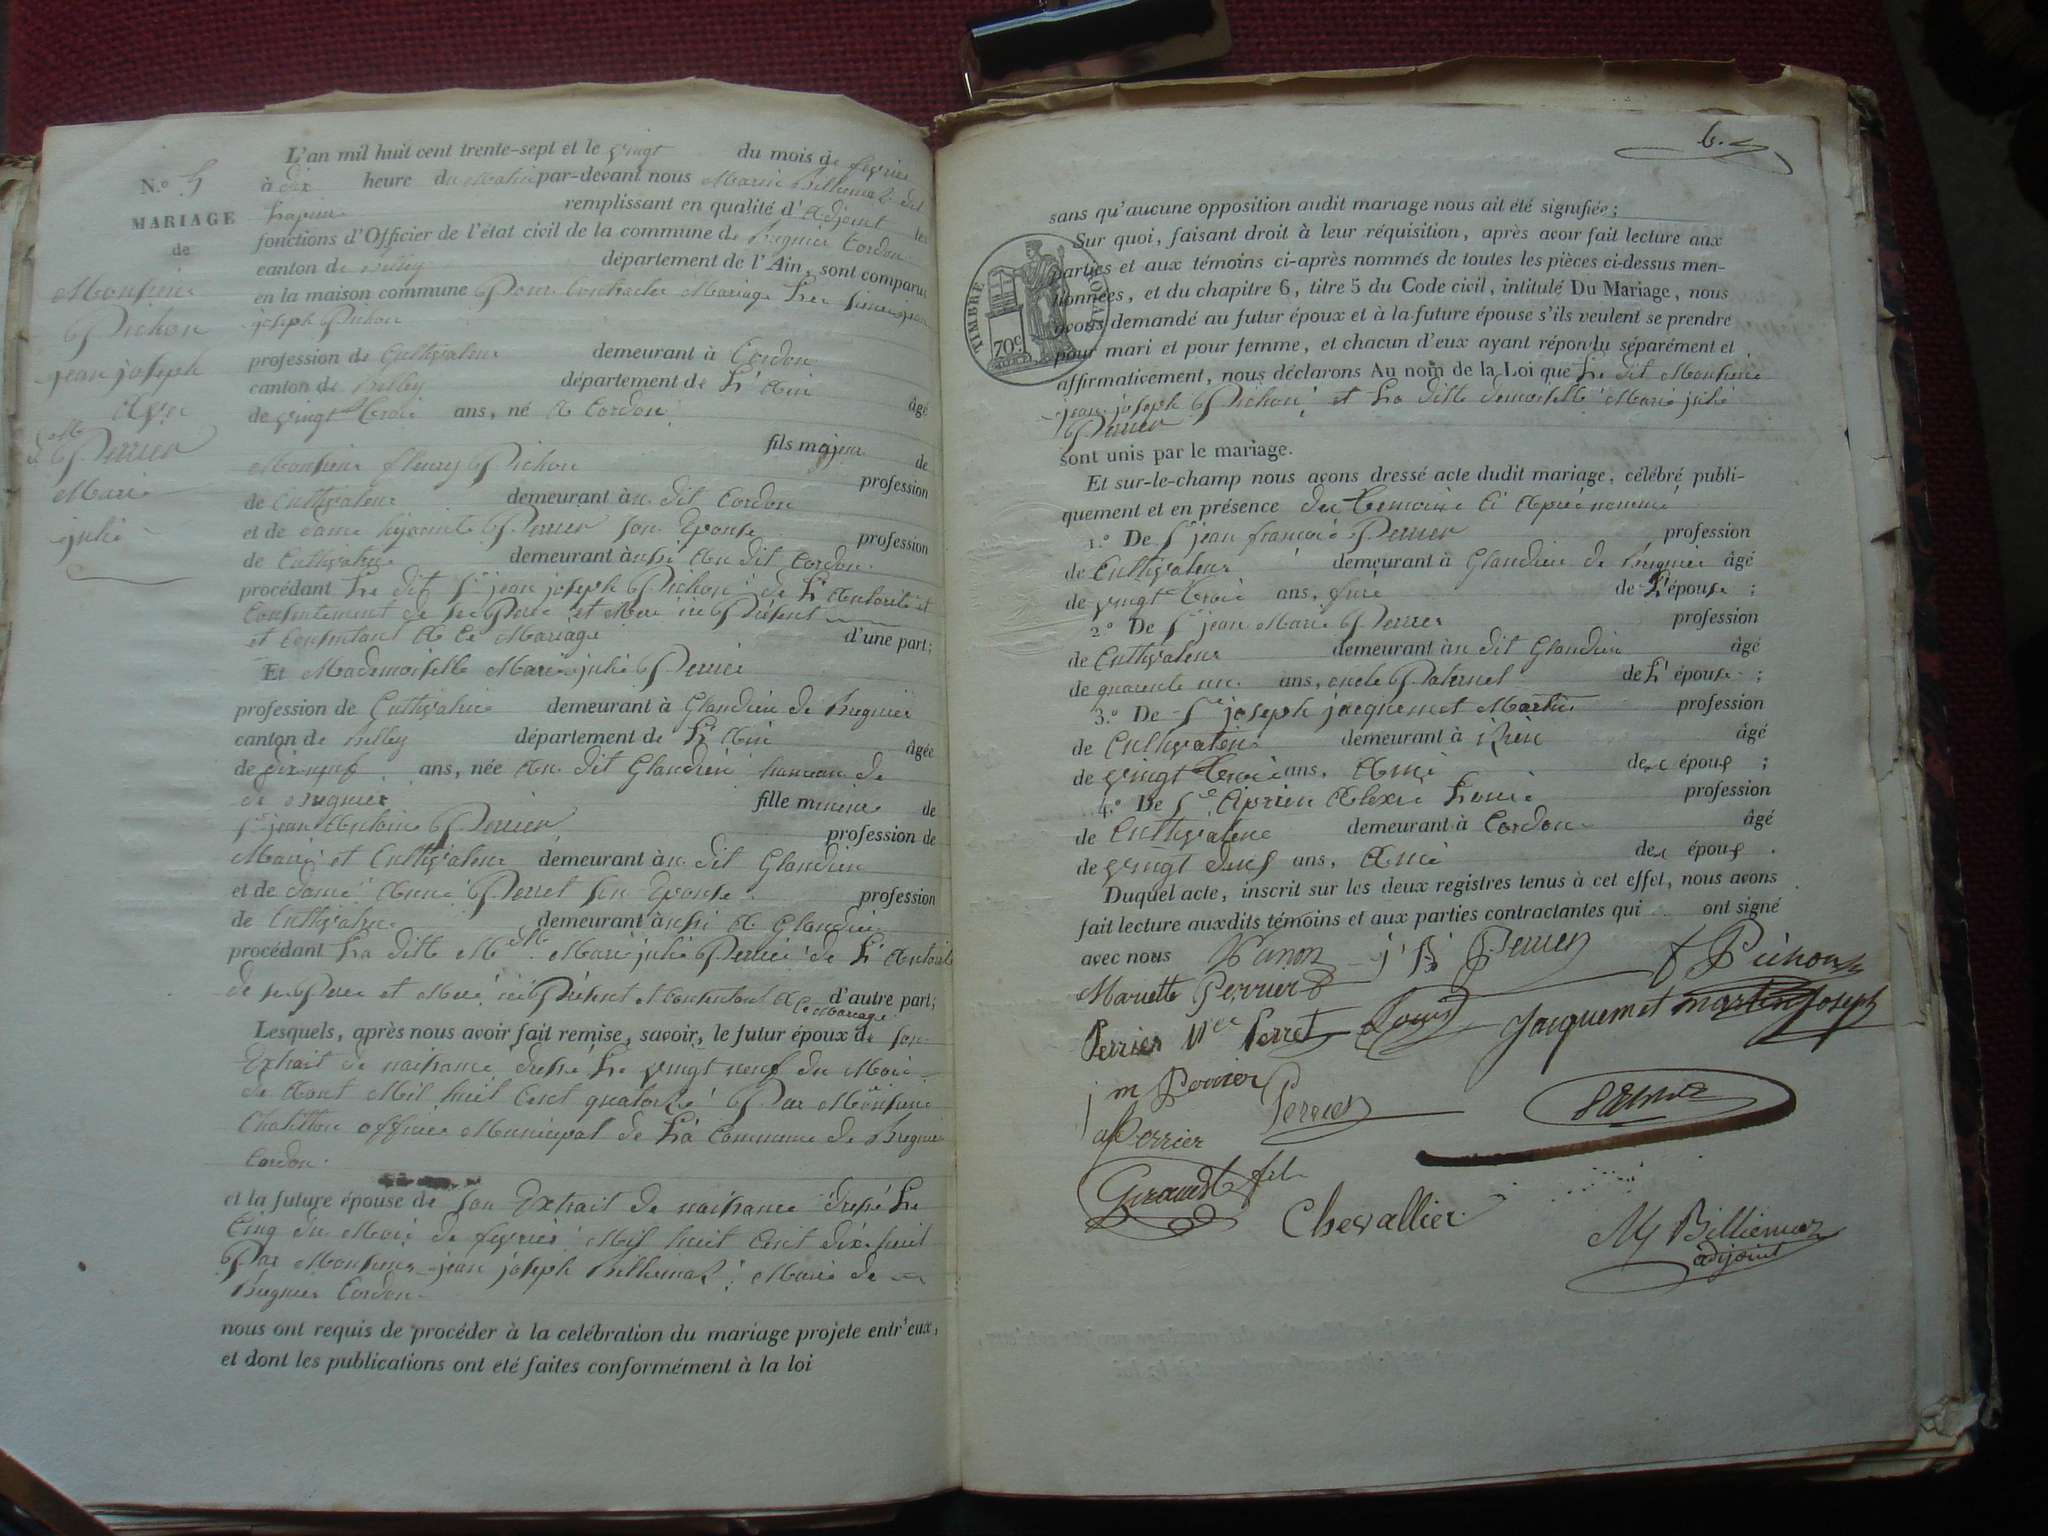 N.° 5
MARIAGE
de
Monsieur
Pichon
jean joseph
Avec
M.lle
Perrier
Marie
julie
L'an mil huit cent trente-sept et le vingt du mois de fevrier
à dix heure du Matin par-devant nous Marin Billiemaz dit
Lapine remplissant en qualité d' Adjoint les
fonctions d'Officier de l'état civil de la commune de Bregnier Cordon
canton de Belley département de l'Ain, sont comparus
en la maison commune Pour Contracter Mariage Le Sieur jean
joseph Pichon
profession de Cultivateur demeurant à Cordon
canton de Belley département de L'Ain
de vingt trois ans, né A Cordon âgé
fils majeur de
Monsieur fleury Pichon profession
de Cultivateur demeurant àu dit Cordon
et de dame hyacinte Perrier son Epouse profession
de Cultivatrice demeurant àussi Au dit Cordon
procédant Le dit Sr jean joseph Pichon de L'Autorité et
Consentement de ses Pere et Mere ici Présent
et Consentant A Ce Mariage d'une part;
Et Mademoiselle Marie julie Perrier
profession de Cultivatrice demeurant à Glandieu de Bregnier
canton de Belley département de L'Ain âgée
de dix neuf ans, née Au dit Glandieu hameau de
de Bregnier fille mineure de
Sr jean Antoine Perrier profession de
Maire et Cultivateur demeurant àu dit Glandieu
et de dame Anne Perret son Epouse profession
de Cultivatrice demeurant àussi A Glandieu
procédant La ditte Mlle Marie julie Perrier de L'Autorité
de ses Pere et Mere ici Présent et Consentant A d'autre part;
Ce Mariage
Lesquels, après nous avoir fait remise, savoir, le futur époux de son
Extrait de naissance dressé Le vingt neuf du Mois
de Aout Mil huit Cent quatorze Par Monsieur
Chatitton officier Municipal de La Commune de Bregnier
Cordon
et la future épouse de son Extrait de naissance dressé Le
Cinq du Mois de fevrier Mil huit Cent dix huit
Par Monsieur jean joseph Billiemaz Maire de
Bregnier Cordon
nous ont requis de procéder à la celébration du mariage projete entr'eux,
et dont les publications ont eté faites conformément à la loi
6.
sans qu'aucune opposition audit mariage nous ait été signifiée;
Sur quoi, faisant droit à leur réquisition, après avoir fait lecture aux
parties et aux témoins ci-après nommés de toutes les pièces ci-dessus men-
tionnées, et du chapitre 6, titre 5 du Code civil, intitulé Du Mariage, nous
avons demandé au futur époux et à la future épouse s'ils veulent se prendre
pour mari et pour femme, et chacun d'eux ayant répondu séparément et
affirmativement, nous déclarons Au nom de la Loi que Le dit Monsieur
jean joseph Pichon et La ditte demoiselle Marie julie
Perrier
sont unis par le mariage.
TIMBRE ROYAL
70c.
Et sur-le-champ nous avons dressé acte dudit mariage, célébré publi-
quement et en présence des temoins Ci Après nommé
1.° De Sr jean francois Perrier profession
de Cultivateur demeurant à Glandieu de Bregnier âgé
de vingt trois ans, frere de L'épouse ;
2.° De Sr jean Marie Perrier profession
de Cultivateur demeurant àu dit Glandieu âgé
de quarente un ans, oncle Paternel de L'épouse ;
3.° De Sr joseph jacquemet Martin profession
de Cultivateur demeurant à âgé
de vingt trois ans, Ami des époux ;
4.° De Sr Ciprien Alexis Louis profession
de Cultivateur demeurant à Cordon âgé
de vingt deux ans, Ami des époux .
Duquel acte, inscrit sur les deux registres tenus à cet effet, nous avons
fait lecture auxdits témoins et aux parties contractantes qui ont signé
avec nous Perrier f Pichon
Mariette Perrier
Perrier née Perret Louis Jacquemet martin Joseph
j m Perrier Perrier
a Perrier
Giraud fils
Chevallier
M Billiemaz
adjoint